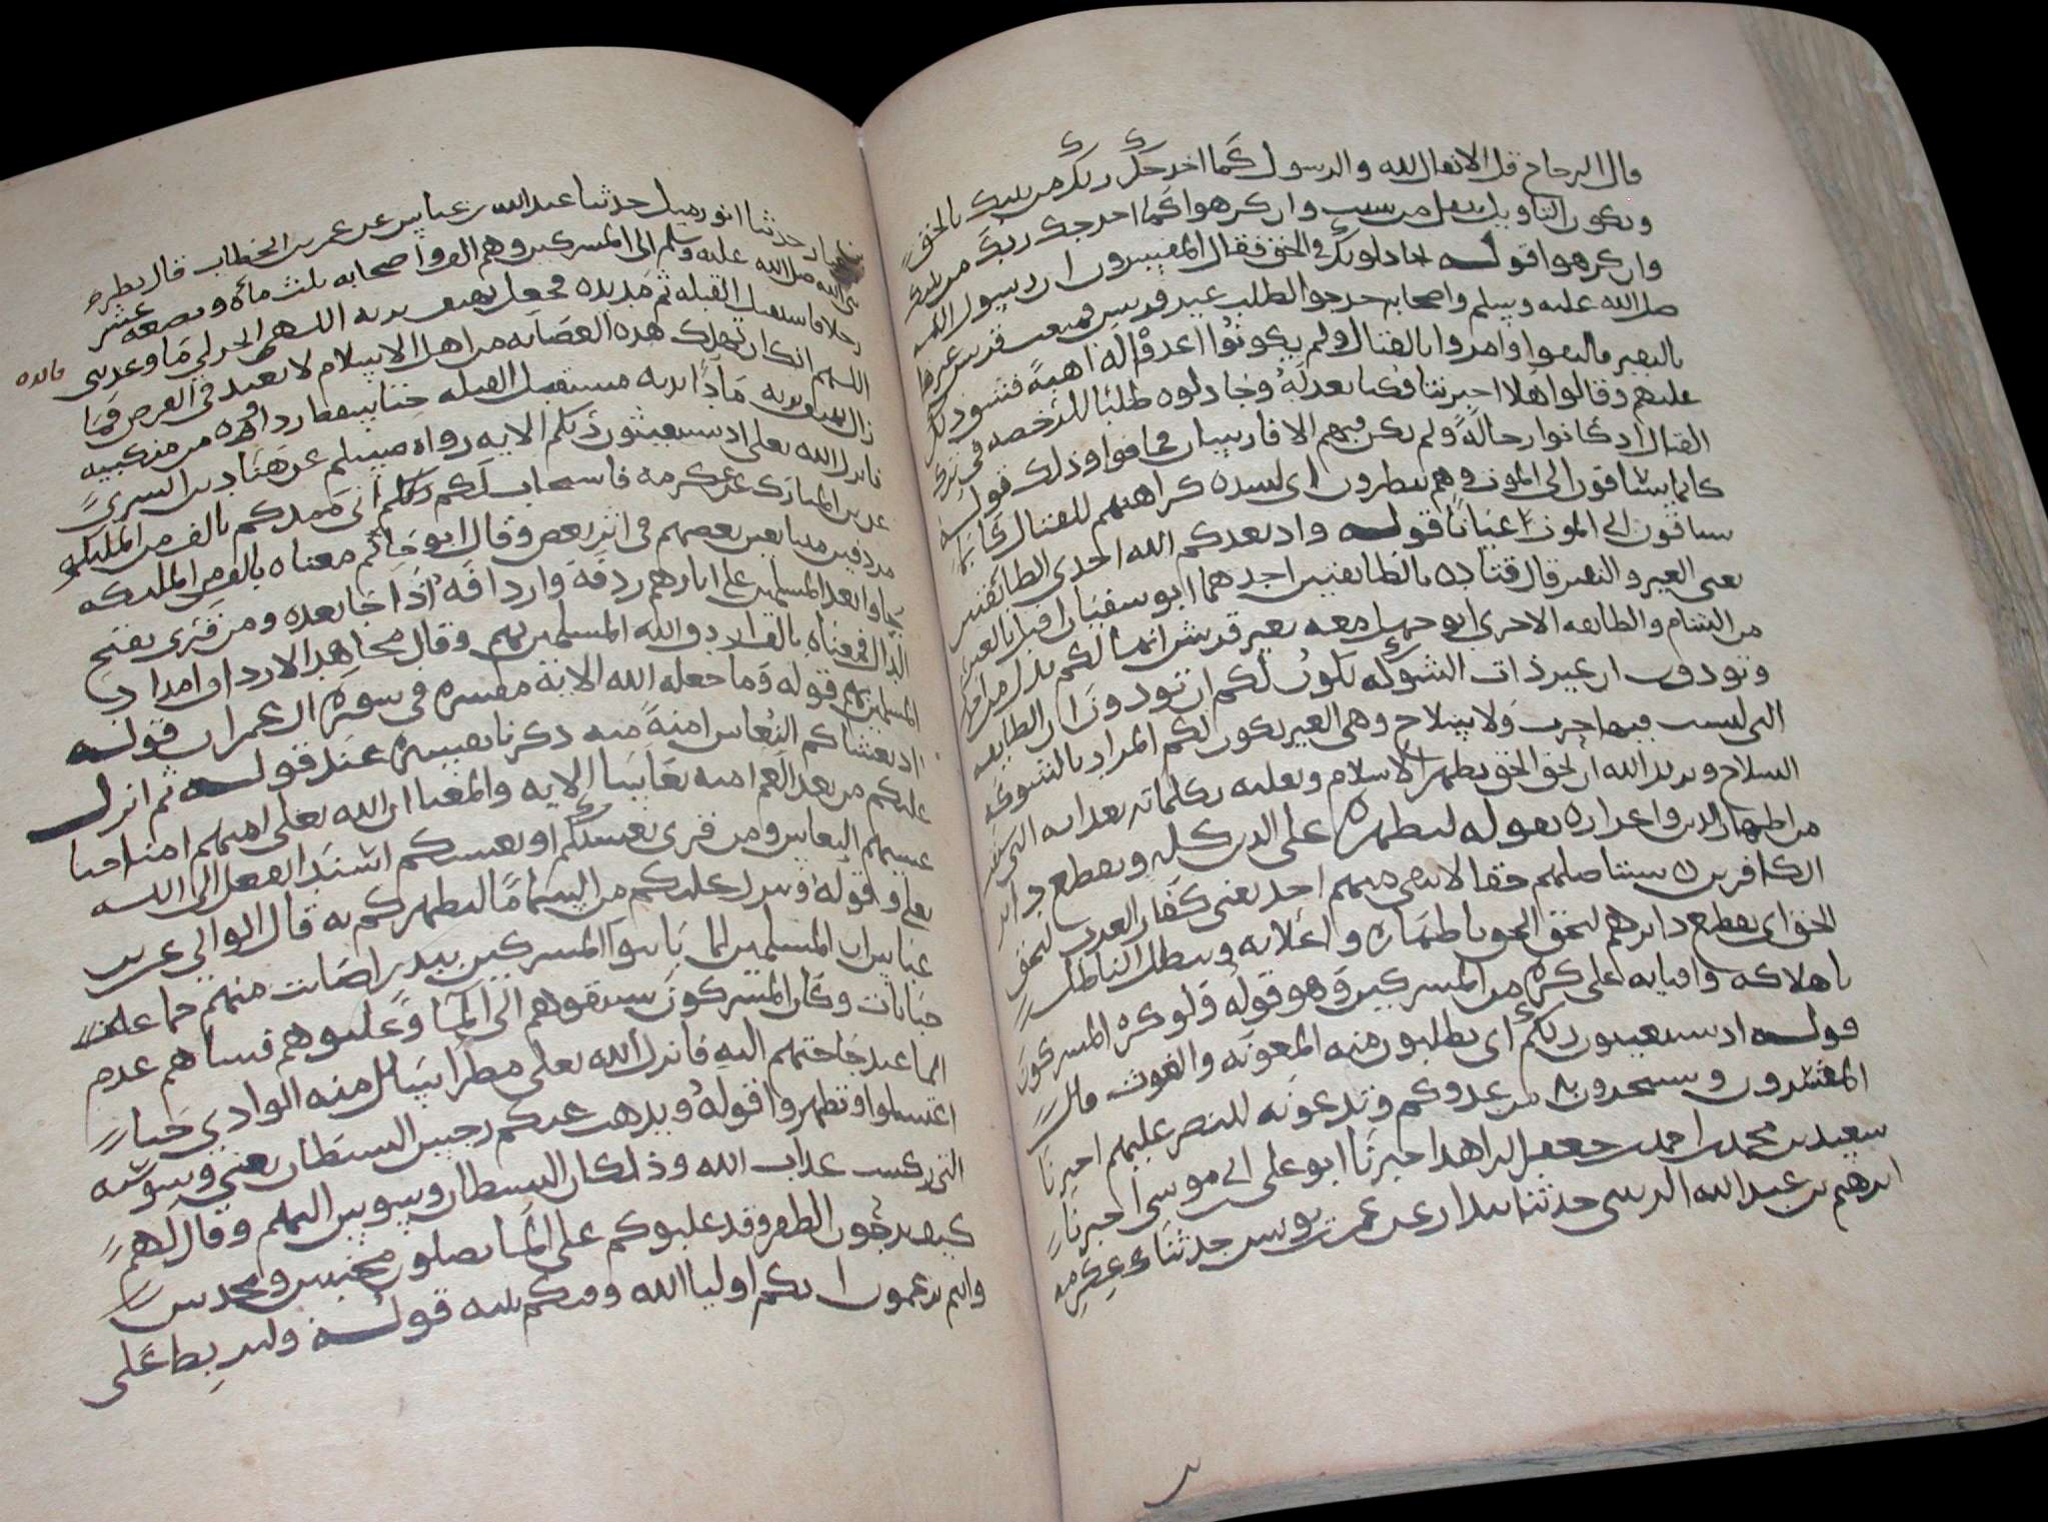 قال الزجاج قل الانفال لله والرسول كما اخرجك ربك من بيتك بالحق
ويكون التاويل من سبب وان كرهوا كما اخرجك ربك من بيتك
وان كرهوا قوله يجادلونك في الحق فقال المفسرون ان رسول الله
صلى الله عليه وسلم واصحابه خرجوا لطلب عير قريش فمنعت قريش عيرها
بالنفير فالتقوا وامروا بالقتال ولم يكونوا اعدوا له اهبة فشق ذلك
عليهم وقالوا هلا اخبرتنا فكنا نعد له وجادلوه طلبا للرخصة في ترك
القتال اذ كانوا رجالة ولم يكن فيهم الا فارسان فخافوا وذلك قوله
كانما يساقون الى الموت وهم ينظرون اى لشدة كراهتهم للقتال كانما
يساقون الى الموت عيانا قوله واذ يعدكم الله احدى الطائفتين
يعنى العير والنفير قال قتادة الطائفتين احدهما ابو سفيان اقبل بالعير
من الشام والطائفة الاخرى ابو جهل معه نفير قريش انها لكم بدل من احدى
وتودون ان غير ذات الشوكة تكون لكم اى تودون ان الطائفة
التى ليست فيها حرب ولا سلاح وهى العير تكون لكم المراد بالشوكة
السلاح ويريد الله ان يحق الحق يظهر الاسلام ويعليه بكلماته بعداته التى سبقت
من اظهار الدين واعزازه بقوله ليظهره على الدين كله ويقطع دابر
الكافرين يستاصلهم حتى لا يبقى منهم احد يعنى كفار العرب ليحق
الحق اى يقطع دابرهم ليحق الحق باظهاره واعلائه ويبطل الباطل
باهلاكه وافنائه على كره من المشركين وهو قوله ولو كره المشركون
قوله اذ تستغيثون ربكم اى تطلبون منه المعونة والغوث قال
المفسرون وتستجيرون به من عدوكم وتدعونه للنصر عليهم اخبرنا
سعيد بن محمد بن احمد بن جعفر الزاهد اخبرنا ابو على ابن موسى اخبرنا
ابرهيم بن عبد الله الزينبى حدثنا بندار عن عمر بن يونس حدثنا عكرمة
بن عمار حدثنا ابو زميل حدثنا عبد الله بن عباس عن عمر بن الخطاب قال نظر
نبى الله صلى الله عليه وسلم الى المشركين وهم الف واصحابه ثلث مائة وبضعة عشر
رجلا فاستقبل القبلة ثم مد يده فجعل يهتف بربه اللهم انجز لى ما وعدتنى
فائده
اللهم انك ان تهلك هذه العصابة من اهل الاسلام لا تعبد فى الارض فما
زال يهتف بربه مادا يديه مستقبل القبلة حتى سقط رداؤه من منكبيه
فانزل الله تعالى اذ تستغيثون ربكم الاية رواه مسلم عن هناد بن السرى
عن بن المبارك عن عكرمة فاستجاب لكم ربكم انى ممدكم بالف من الملئكة
مردفين متتابعين بعضهم فى اثر بعض وقال ابو حاتم معناه بالف من الملئكة
جاوا بعد المسلمين على اثارهم ردفه واردافه اذا جا بعده ومن قرى بفتح
الدال فمعناه بالف اردف الله المسلمين بهم وقال مجاهد الارداف امداد
المسلمين بهم قوله وما جعله الله الاية مفسره فى سورة ال عمران قوله
اذ يغشاكم النعاس امنة منه ذكرنا تفسيره عند قوله ثم انزل
عليكم من بعد الغم امنة نعاسا الاية والمعنى ان الله تعالى امنهم امنا حتى
غشيهم النعاس ومن قرى يغشيكم او يغشيكم اسند الفعل الى الله
تعالى وقوله وينزل عليكم من السما ما ليطهركم به قال الوالبى عن بن
عباس ان المسلمين لما باتوا المشركين ببدر اصابت منهم جماعة
جنابات وكان المشركون سبقوهم الى الما وغلبوهم فساهم عدم
الما عند حاجتهم اليه فانزل الله تعالى مطرا سال منه الوادى حتى
اغتسلوا وتطهروا قوله ويذهب عنكم رجس الشيطان يعنى وسوسته
التى تكسب عذاب الله وذلك ان الشيطان وسوس اليهم وقال لهم
كيف ترجون الظفر وقد غلبوكم على الما تصلون مجنبين ومحدثين
وانتم تزعمون انكم اوليا الله وفيكم نبيه قوله وليربط على